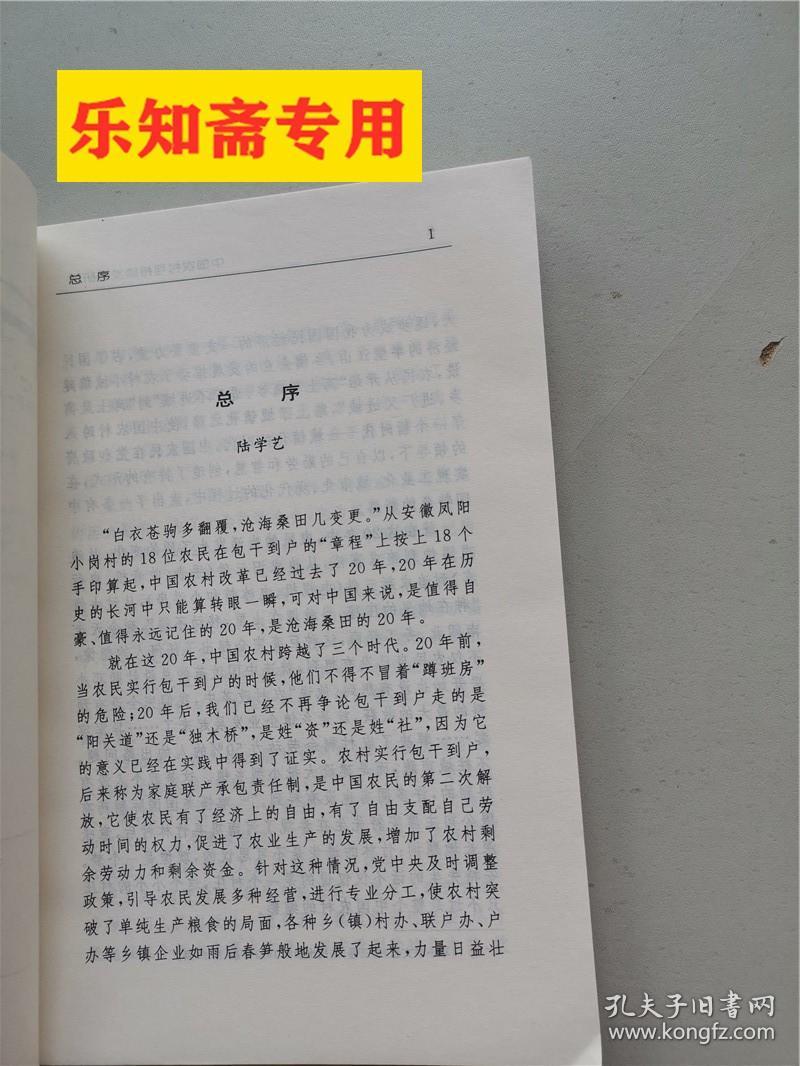 乐知斋专用
总 序
1
总 序
陆学艺
“白衣苍驹多翻覆，沧海桑田几变更。”从安徽凤阳
小岗村的18位农民在包干到户的“章程”上按上18个
手印算起，中国农村改革已经过去了20年，20年在历
史的长河中只能算转眼一瞬，可对中国来说，是值得自
豪、值得永远记住的20年，是沧海桑田的20年。
就在这20年，中国农村跨越了三个时代。20年前，
当农民实行包干到户的时候，他们不得不冒着“蹲班房”
的危险；20年后，我们已经不再争论包干到户走的是
“阳关道”还是“独木桥”，是姓“资”还是姓“社”，因为它
的意义已经在实践中得到了证实。农村实行包干到户，
后来称为家庭联产承包责任制，是中国农民的第二次解
放，它使农民有了经济上的自由，有了自由支配自己劳
动时间的权力，促进了农业生产的发展，增加了农村剩
余劳动力和剩余资金。针对这种情况，党中央及时调整
政策，引导农民发展多种经营，进行专业分工，使农村突
破了单纯生产粮食的局面，各种乡（镇）村办、联户办、户
办等乡镇企业如雨后春笋般地发展了起来，力量日益壮
孔夫子旧书网
www.kongfz.com